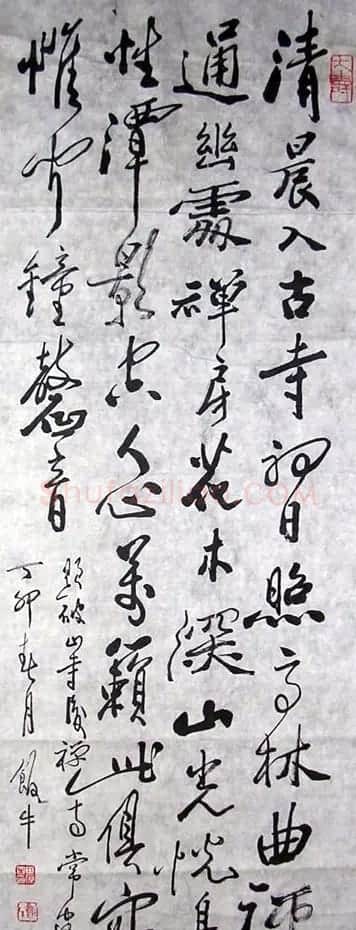 清晨入古寺初日照高林曲
通幽處禪房花木深山光悅鳥
性潭影空人心萬籟此俱寂
惟聞鐘磬音
題破山寺後禪 常
丁卯春月 牛